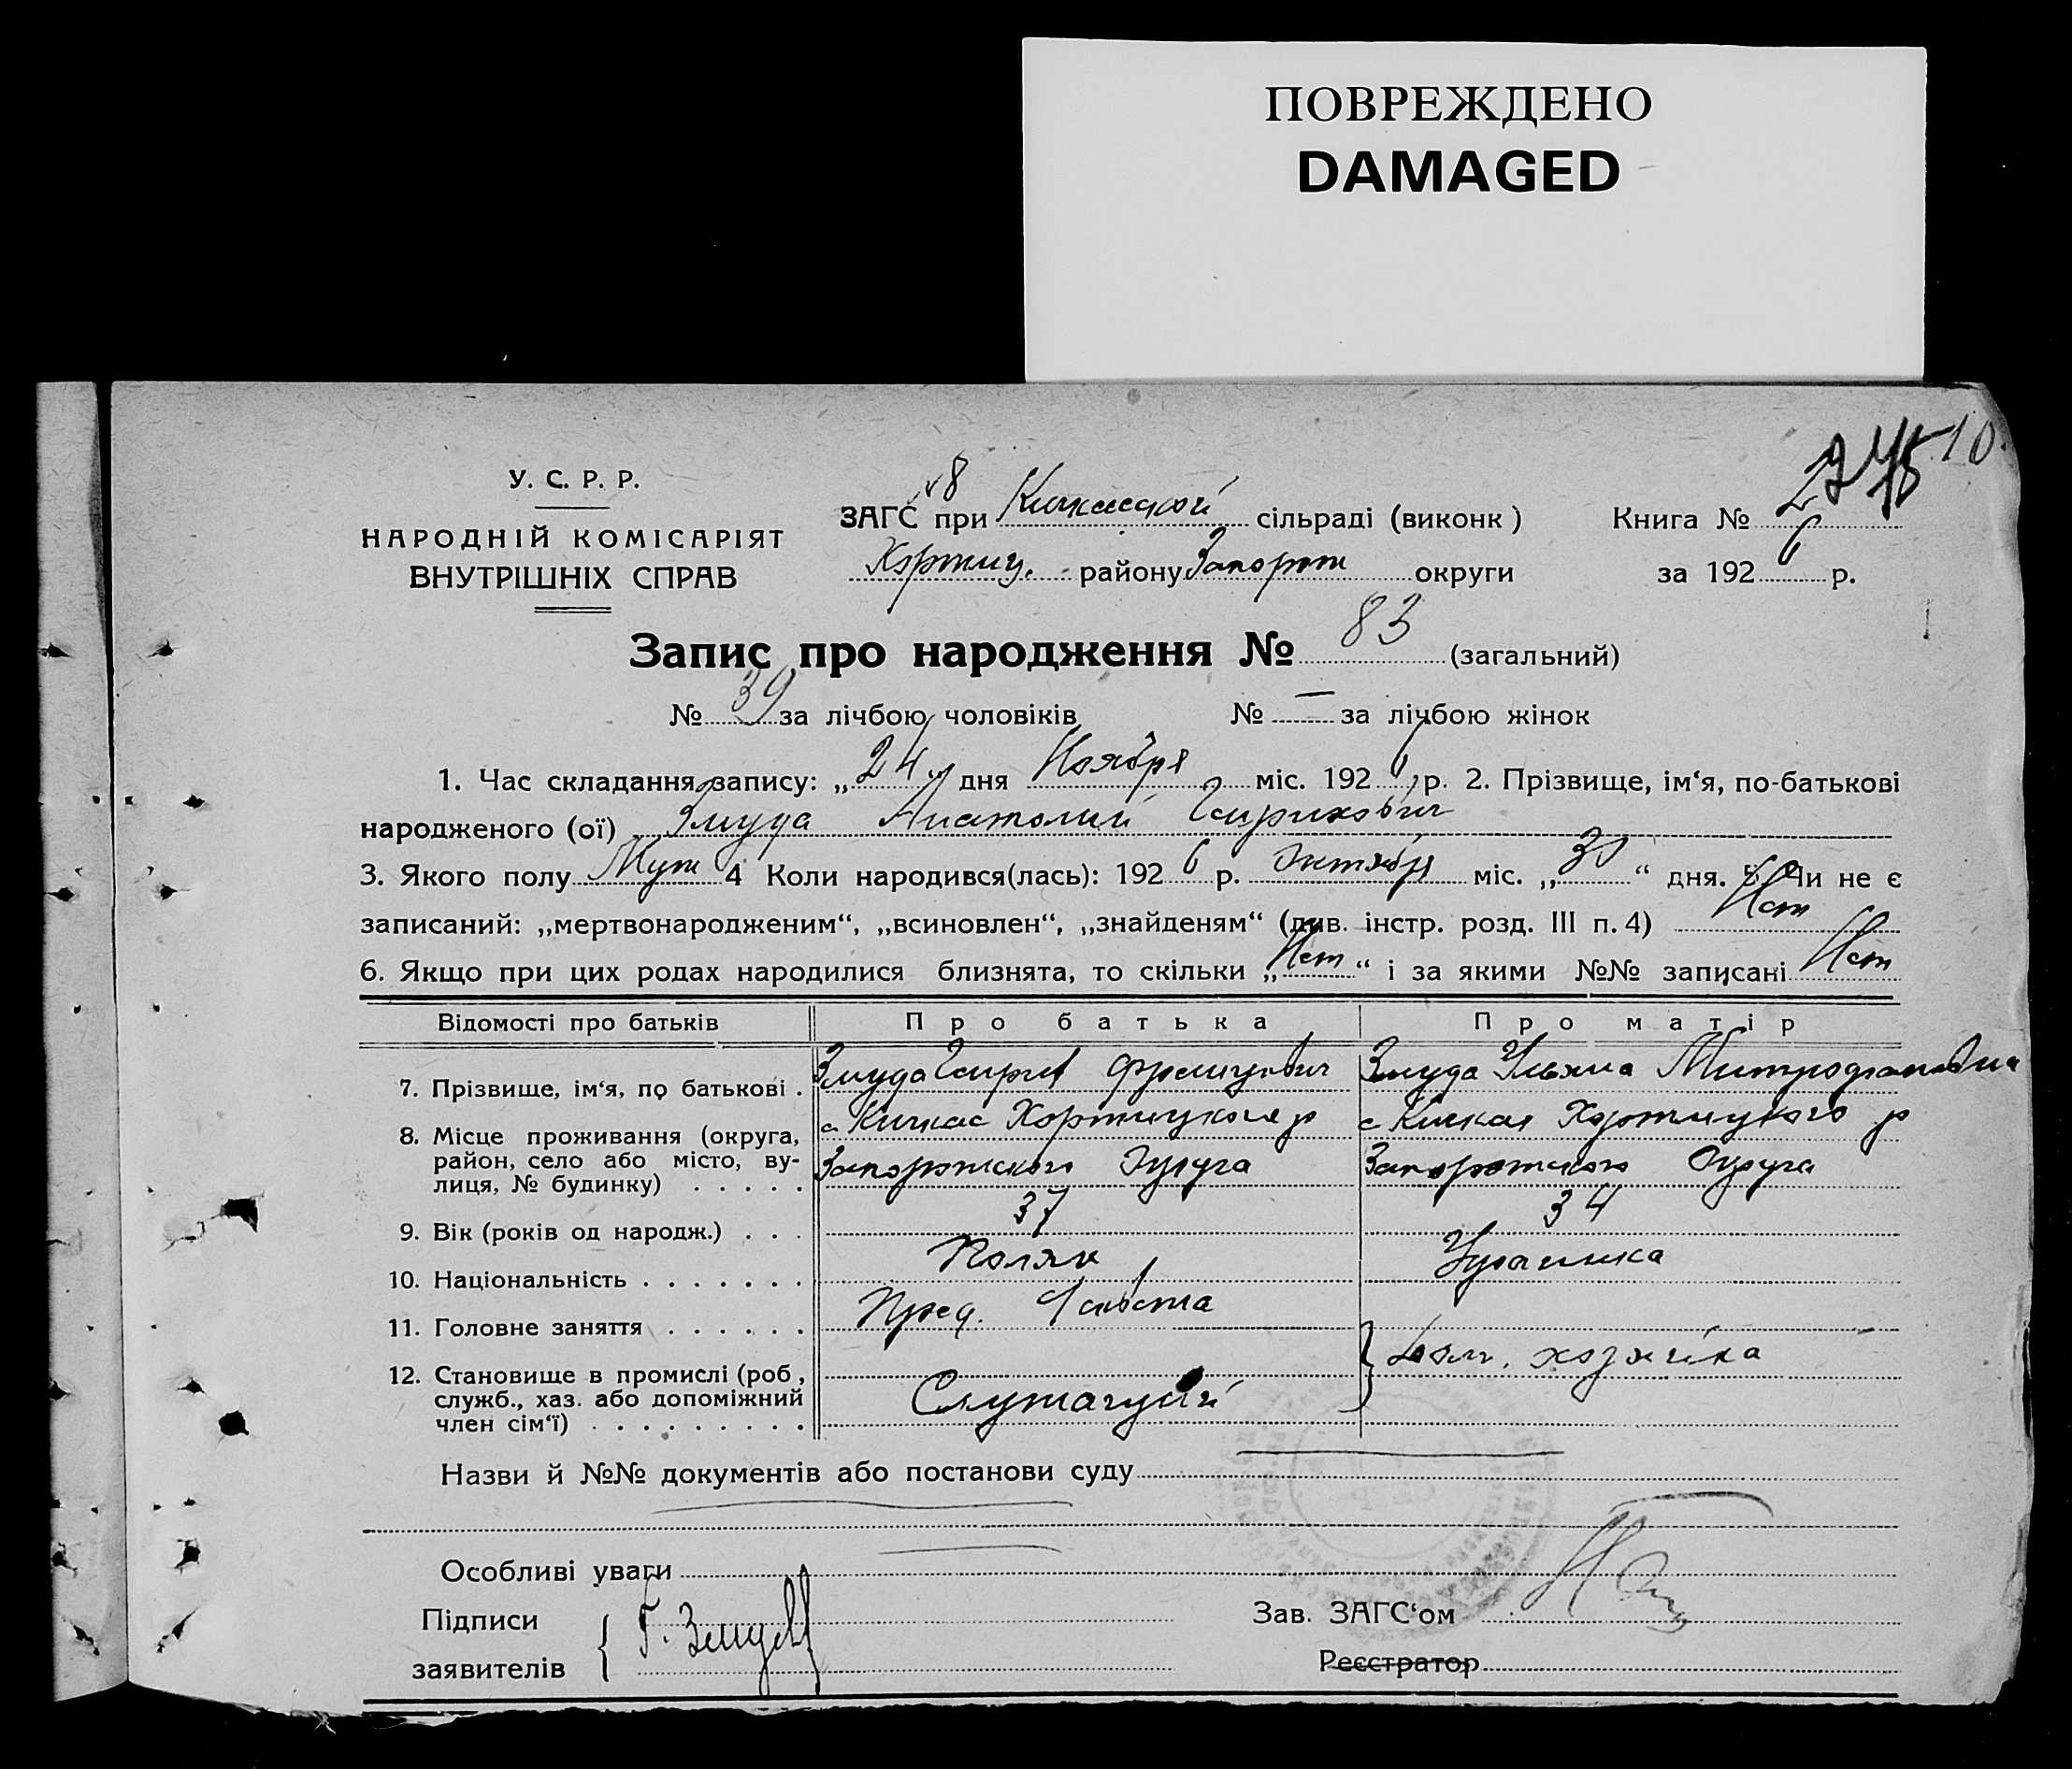 ПОВРЕЖДЕНО
DAMAGED
10
У. С. Р. Р.
НАРОДНІЙ КОМІСАРІЯТ
ВНУТРІШНІХ СПРАВ
8
ЗАГС при Кичкасской сільраді (виконк) Книга №
Хортиц. району Запорож округи за 1926 р.
Запис про народження № 83 (загальний)
№ 39 за лічбою чоловіків № — за лічбою жінок
1. Час складання запису: „24“ дня Ноября міс. 1926 р. 2. Прізвище, ім‘я, по-батькові
народженого (ої) Змуда Анатолий Генрихович
3. Якого полу Муж 4 Коли народився(лась): 1926 р. Октября міс. „30“ дня. 5. Чи не є
записаний: „мертвонародженим“, „всиновлен“, „знайденям“ (див. інстр. розд. III п. 4) Нет
6. Якщо при цих родах народилися близнята, то скільки „Нет“ і за якими №№ записані Нет
Відомості про батьків Про батька Про матір
7. Прізвище, ім‘я, по батькові . Змуда Генрих Францович Змуда Ульяна Митрофановна
8. Місце проживання (округа, с Кичкас Хортицкого р с Кичкас Хортицкого р
район, село або місто, ву- Запорожского Округа Запорожского Округа
лиця, № будинку) . . . . .
9. Вік (років од народж.) . . . 37 34
10. Національність . . . . . . . Поляк Украинка
11. Головне заняття . . . . . . Пред.
12. Становище в промислі (роб., хозяйка
служб., хаз. або допоміжний Служащий
член сім‘ї) . . . . . . . . .
Назви й №№ документів або постанови суду
Особливі уваги
Підписи Г. Змуда Зав. ЗАГС‘ом
заявителів Реєстратор